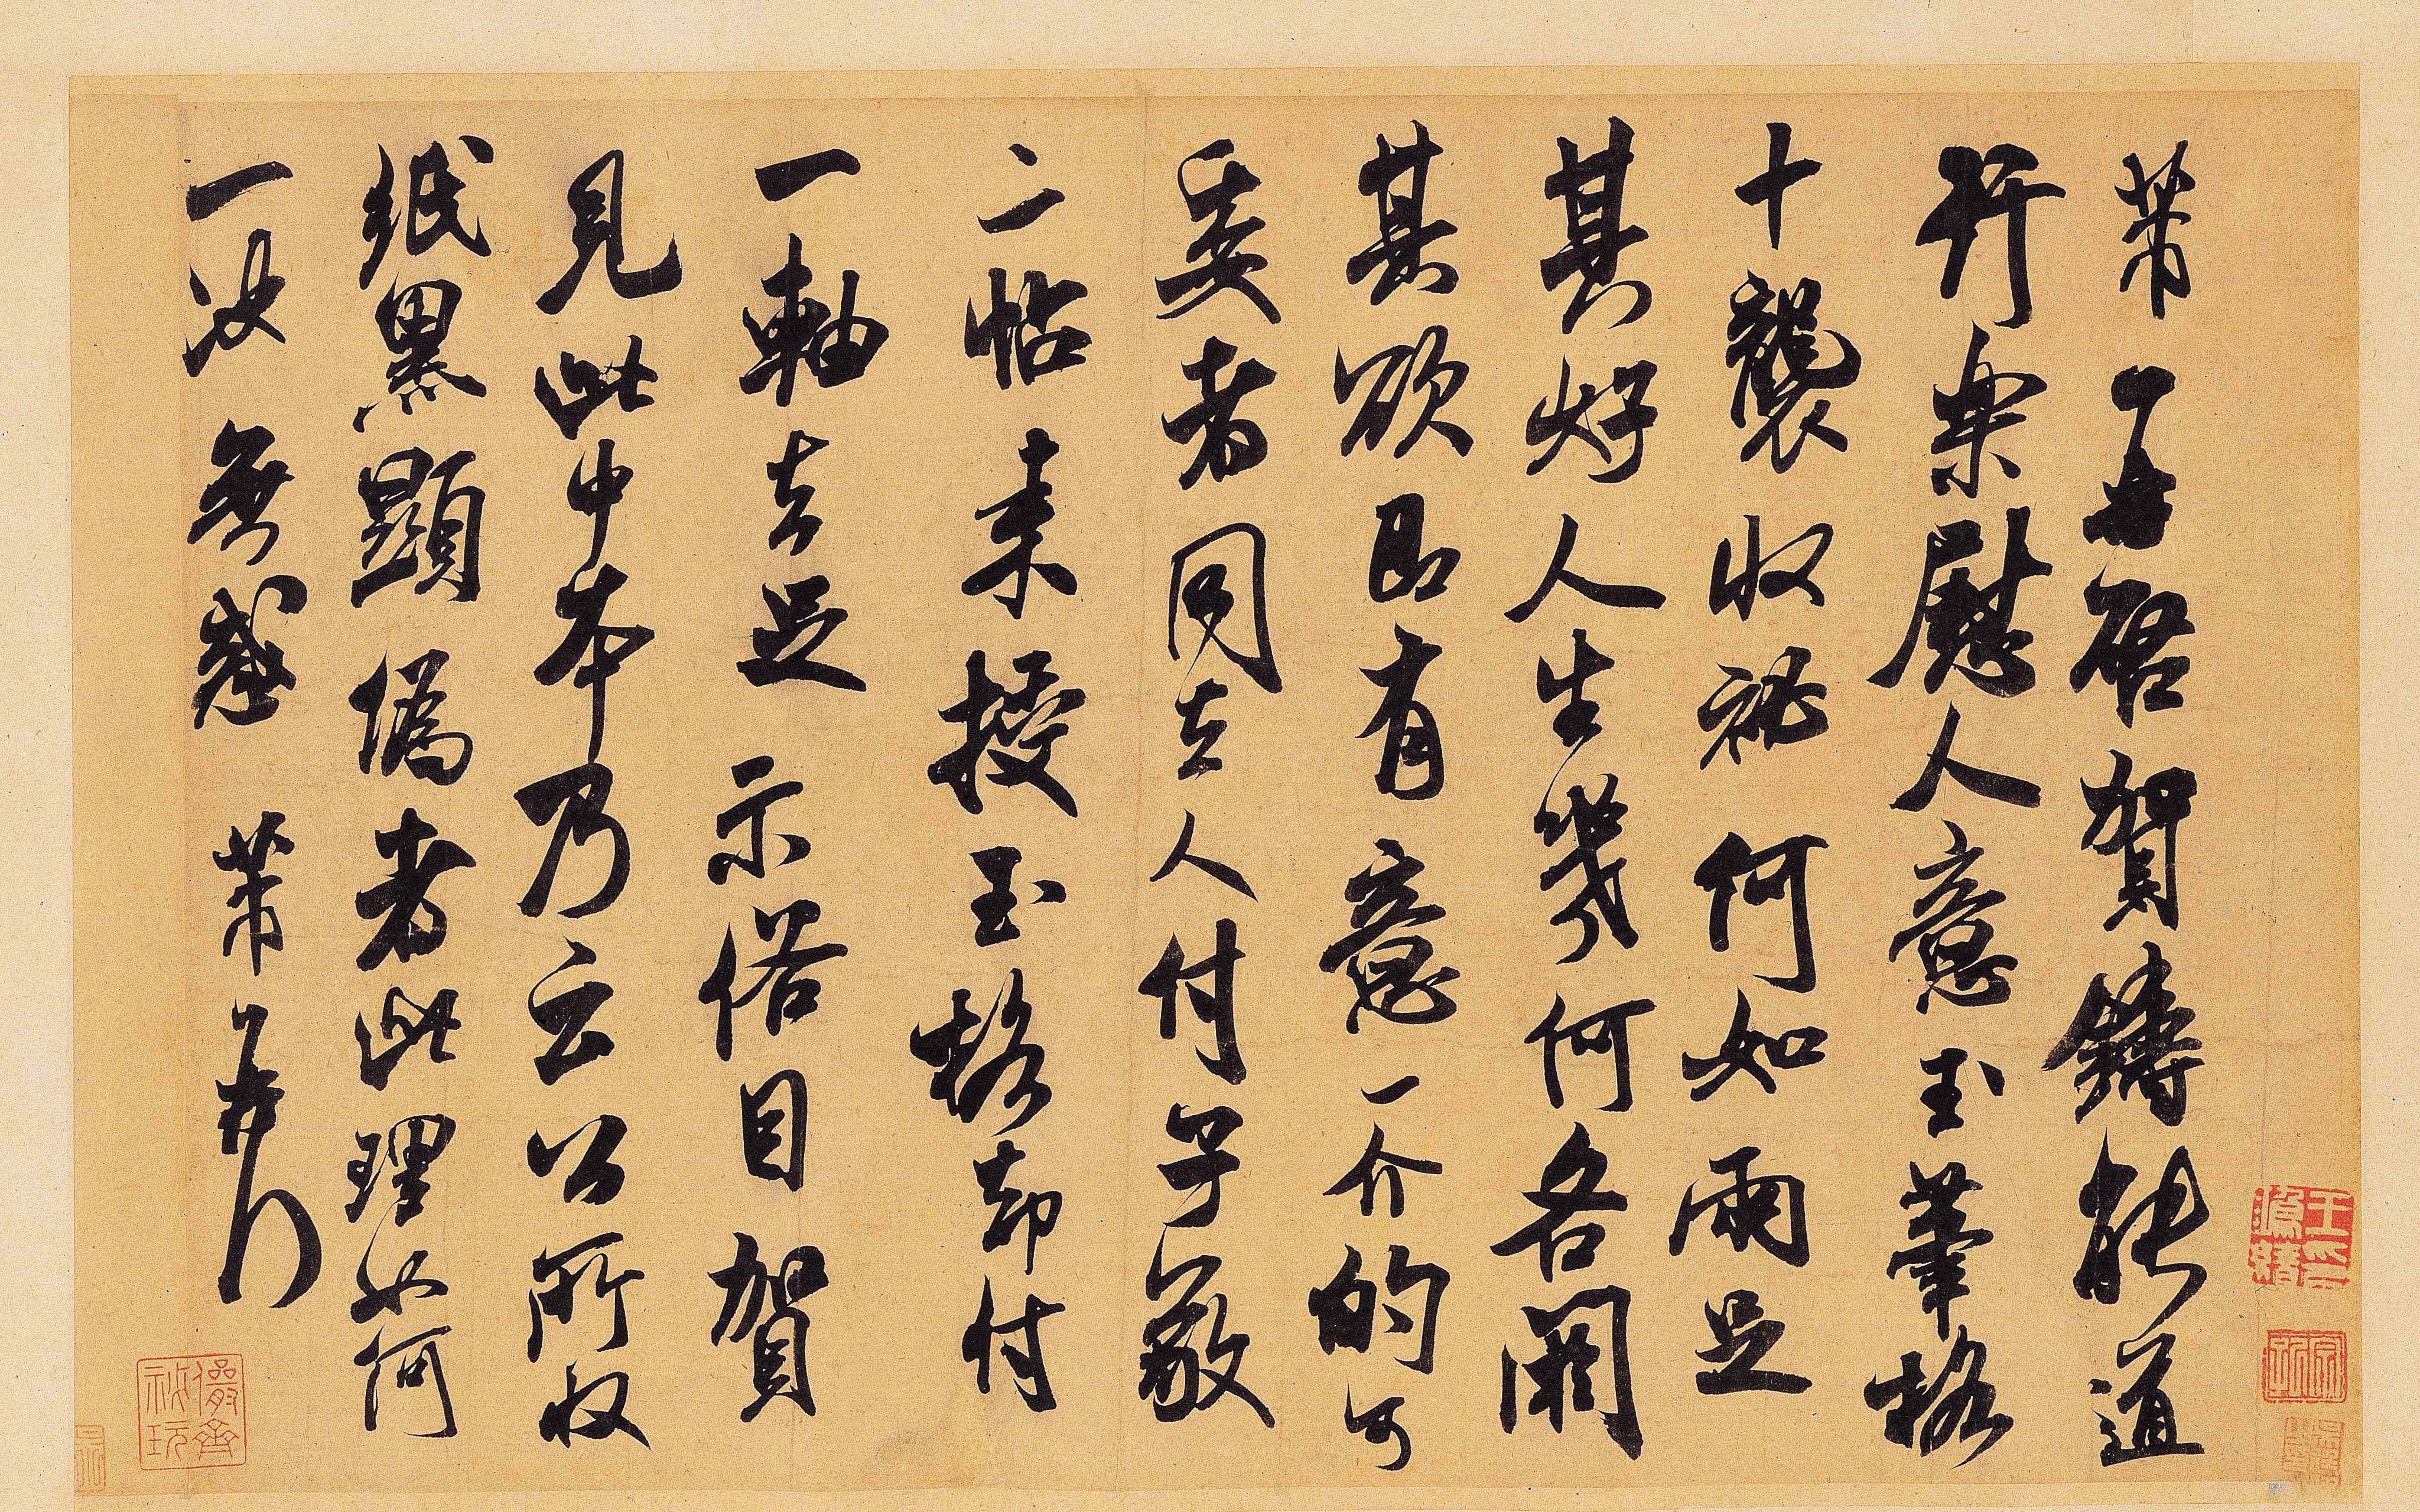 芾頓首啓賀鑄能道
行樂慰人意玉筆格
十襲收秘何如兩足
其好人生幾何各闕
其欲即有意一介的可
委者同去人付子敬
二帖來授玉格却付
一軸去足示俗目賀
見此中本乃云公所收
紙黑顯偽者此理如何
一決無惑芾頓首
王鴻緒印
儼齋秘玩